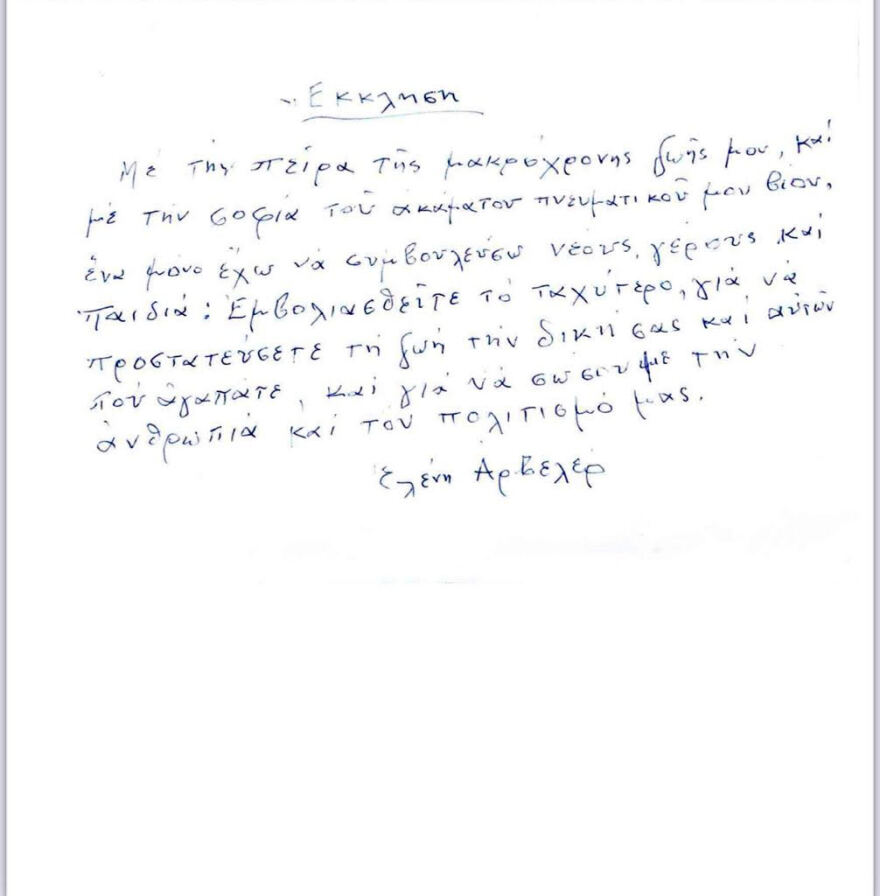 Ἔκκληση
Μέ τήν πείρα τῆς μακρόχρονης ζωῆς μου, καί
μέ τήν σοφία τοῦ ἀκάματου πνευματικοῦ μου βίου,
ἕνα μόνο ἔχω νά συμβουλεύσω νέους, γέρους καί
παιδιά: Ἐμβολιασθεῖτε τό ταχύτερο, γιά νά
προστατεύσετε τή ζωή τήν δική σας καί αὐτῶν
πού ἀγαπᾶτε, καί γιά νά σώσουμε τήν
ἀνθρωπιά καί τόν πολιτισμό μας.
Ἑλένη Ἀρβελέρ